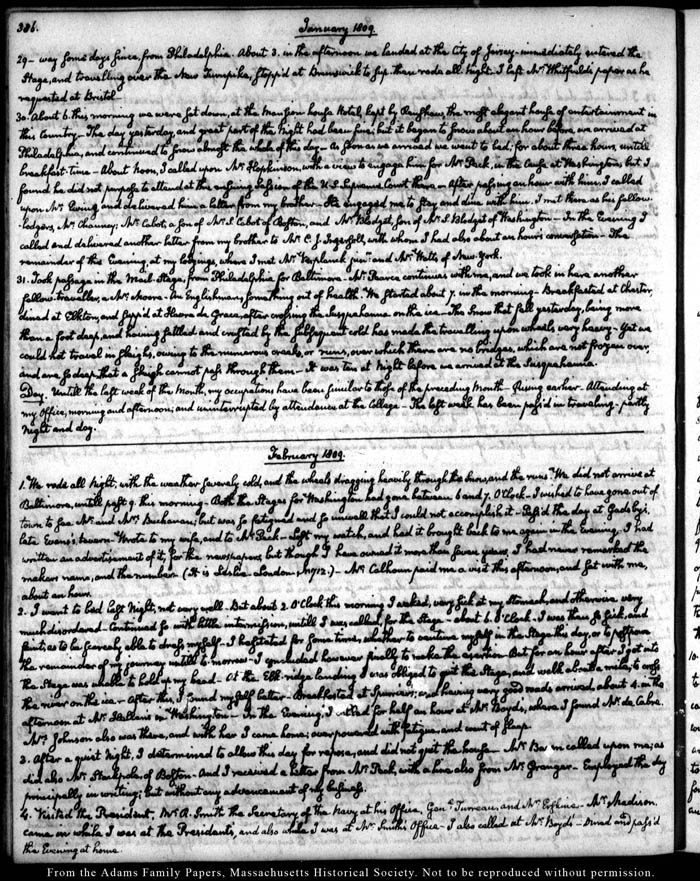 386.
January 1809.
29 – way some days since, from Philadelphia. About 3. in the afternoon we landed at the City of Jersey – immediately entered the
Stage, and travelling over the New Turnpike, stopp'd at Brunswick to sup. then rode all night. I left Mr Whitfield's paper as he
requested at Bristol.
30. About 6. this morning we were set down, at the Mansion house Hotel, kept by Renshaw, the most elegant house of entertainment in
this Country – The day yesterday, and great part of the Night had been fine; but it began to snow about an hour before we arrived at
Philadelphia, and continued to snow almost the whole of this day – As soon as we arrived we went to bed; for about three hours, untill
breakfast-time – About Noon, I called upon Mr Hopkinson, with a view to engage him for Mr Peck, in the Cause at Washington; but I
found he did not purpose to attend at the ensuing Session of the U.S. Supreme Court there – After passing an hour with him, I called
upon Mr Ewing, and delivered him a letter from my brother – He engaged me to stay and dine with him. I met there as his fellow-
lodgers, Mr Chauncy; Mr Cabot, a son of Mr S. Cabot of Boston, and Mr Blodget, son of Mr S. Blodget of Washington – In the Evening I
called and delivered another letter from my brother to Mr C. J. Ingersoll, with whom I had also about an hour's conversation – The
remainder of the Evening, at my lodgings, where I met Mr Verplanck junr. and Mr Watts of New York.
31. Took passage in the Mail-Stage, from Philadelphia for Baltimore. Mr Pearce continues with me, and we took in here another
fellow-traveller, a Mr Moore – An Englishman, something out of health. We started about 7. in the morning – Breakfasted at Chester,
dined at Elkton, and supp'd at Havre de Grace, after crossing the Susquehanna on the ice – The Snow that fell yesterday, being more
than a foot deep, and having settled and crusted by the subsequent cold has made the travelling upon wheels, very heavy – Yet we
could not travel in sleighs, owing to the numerous creeks, or runs, over which there are no bridges, which are not frozen over,
and are so deep that a sleigh cannot pass through them – It was ten at Night before we arrived at the Susquehanna.
Day. Untill the last week of this Month, my occupations have been similar to those of the preceding Month – Rising earlier – Attending at
my Office, morning and afternoon; and uninterrupted by attendance at the College – The last week has been pass'd in traveling – partly
night and day.
February 1809.
1. We rode all Night; with the weather severely cold, and the wheels dragging heavily through the snow, and the runs – We did not arrive at
Baltimore, untill past 9. this morning – Both the Stages for Washington had gone between 6 and 7. O'Clock – I wished to have gone out of
town to see Mr. and Mrs. Buchanan; but was so fatigued and so unwell that I could not accomplish it – Pass'd the day at Gadsby's,
late Evans's, tavern – Wrote to my wife, and to Mr Peck – Left my watch, and had it brought back to me again in the Evening. I had
written an advertisement of it, for the newspapers, but though I have owned it more than seven years, I had never remarked the
makers name, and the number. (It is London. N 712.) – Mr Calhoun paid me a visit this afternoon, and sat with me,
about an hour.
2. I went to bed last Night, not very well – But about 2. O'Clock this morning I waked, very sick at my Stomach, and otherwise very
much disordered. Continued so with little intermission, untill I was called, for the Stage – about 6. O'Clock – I was then so sick, and
faint, as to be scarcely able to dress myself – I hesitated for some time, whether to venture myself in the Stage this day, or to postpone
the remainder of my journey untill to-morrow – I concluded however finally to make the exertion – But for an hour after I got into
the Stage was unable to hold up my head – At the Elk-ridge landing I was obliged to quit the Stage, and walk about a mile, to cross
the river on the ice – After this, I found myself better – Breakfasted at Spurrier's; and having very good roads arrived, about 4. in the
afternoon at Mr. Hellen's in Washington – In the Evening, I called for half an hour at Mr Boyd's, where I found Mr de Cabre.
Mrs Johnson also was there, and with her I came home; overpowered with fatigue, and want of sleep.
3. After a quiet Night, I determined to allow this day for repose, and did not quit the house – Mr called upon me; as
did also Mr Stackpole, of Boston – And I received a letter from Mr Peck, with a line also from Mr Granger – Employed the day
principally in writing; but without any advancement of my business.
4. Visited the President, Mr R. Smith the Secretary of the Navy at his Office, Genl Turreau, and Mr Erskine – Mr Madison,
came in while I was at the Presidents, and also while I was at Mr Smith's Office – I also called at Mr Boyd's – Dined and pass'd
the Evening at home.
From the Adams Family Papers, Massachusetts Historical Society. Not to be reproduced without permission.